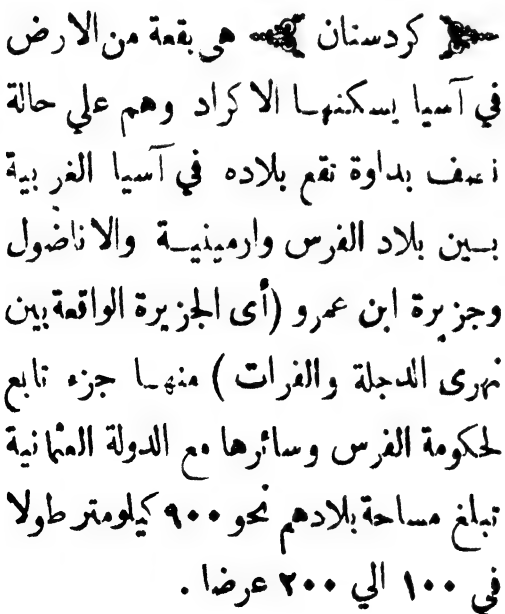 كردستان هى بقعة من الارض
في آسيا يسكنهـا الاكراد وهم علي حالة
نصف بداوة تقع بلاده في آسيا الغربية
بـين بلاد الفرس وارمينيـة والاناضول
وجزيرة ابن عمرو (أى الجزيرة الواقعة بين
نهرى الدجلة والفرات) منهـا جزء تابع
لحكومة الفرس وسائرها مع الدولة العثمانية
تبلغ مساحة بلادهم نحو ٩٠٠ كيلومتر طولا
في ١٠٠ الي ٢٠٠ عرضا .